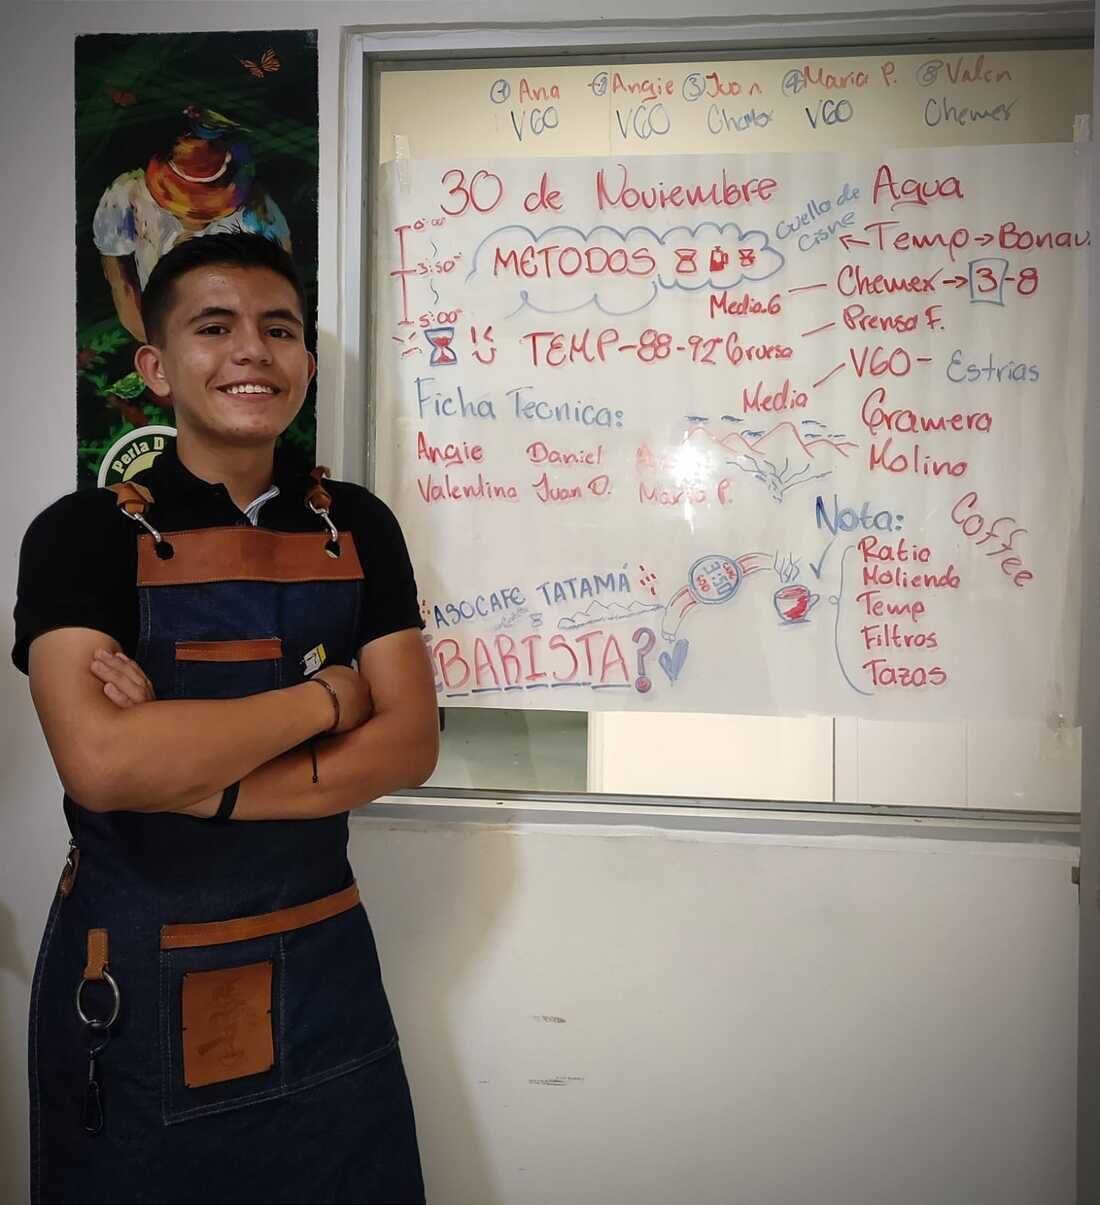 ① Ana ② Angie ③ Juan ④ Maria P. ⑤ Valen
V60 V60 Chemex V60 Chemex
30 de Noviembre
Agua
0:00"
3:50"
5:00"
METODOS
Cuello de
Cisne
Temp → Bonav
Media.6 — Chemex → 3-8
TEMP-88-92° Gruesa — Prensa F.
Media
V60 - Estrias
Gramera
Molino
Ficha Tecnica:
Angie Daniel
Valentina Juan D. Maria P.
Coffee
Nota:
Ratio
Molienda
Temp
Filtros
Tazas
ASOCAFE TATAMÁ
¿BARISTA?
Perla D